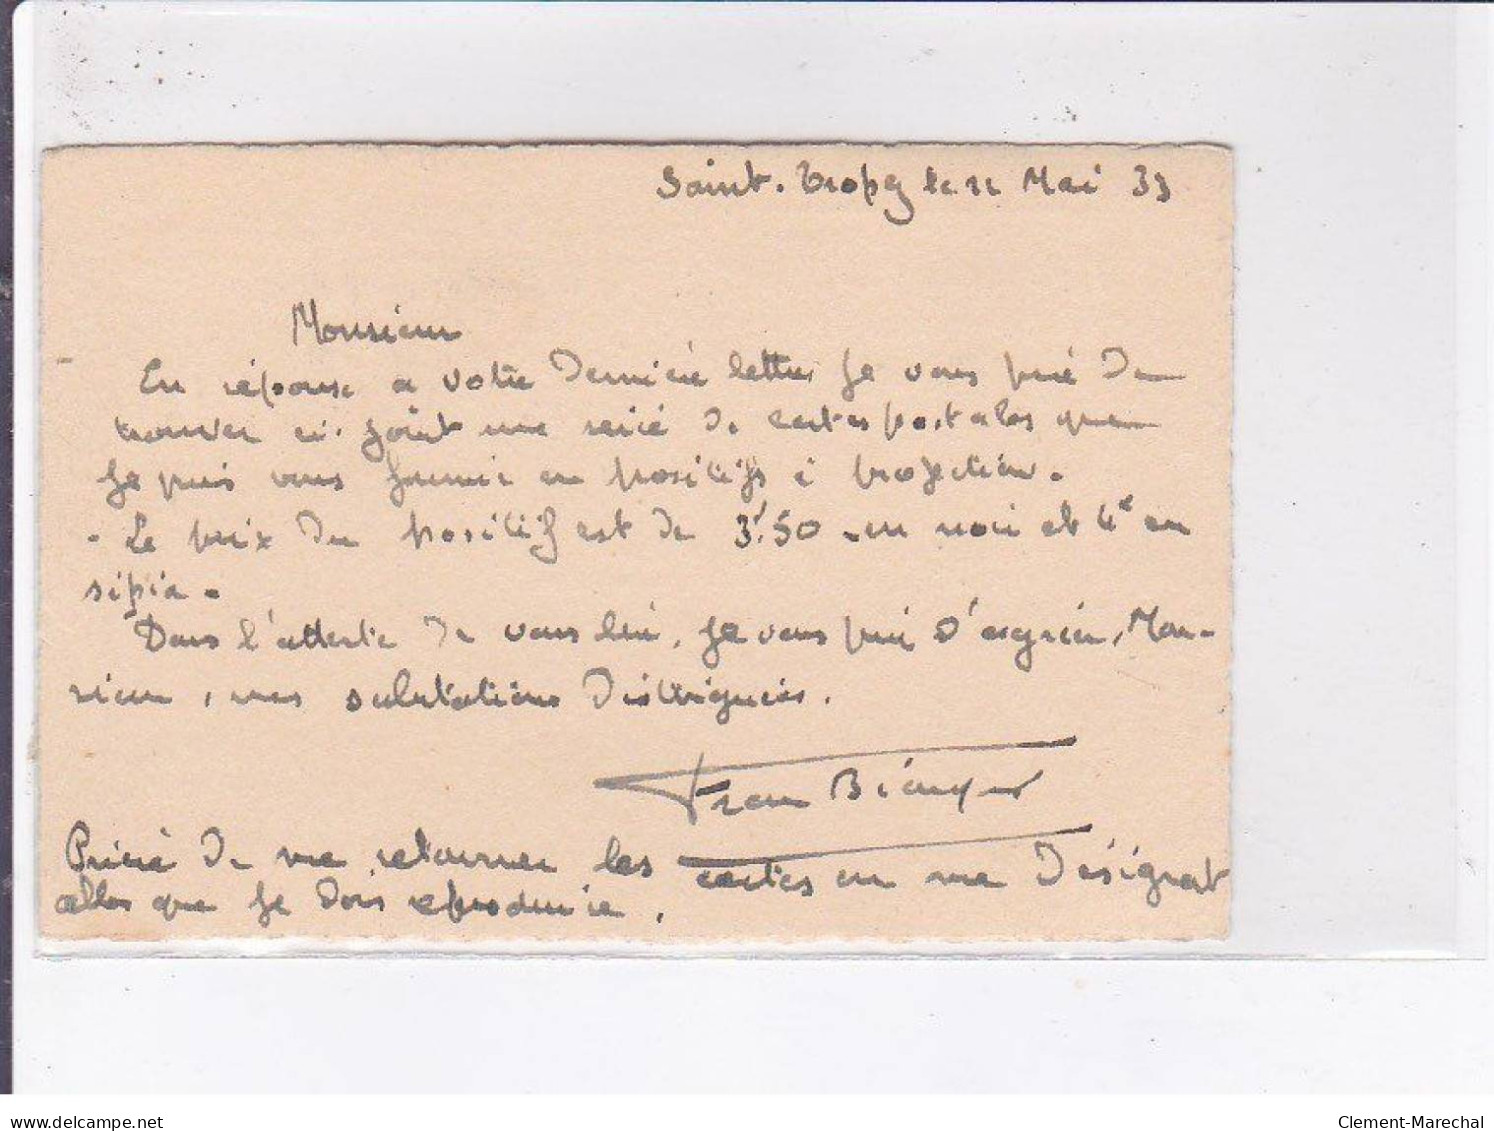 Saint-Tropez le 11 Mai 33
Monsieur
En réponse a votre dernière lettre je vous prie de
trouver ci-joint une série de cartes postales que
je puis vous fournir en positifs à projection.
- Le prix du positif est de 3f.50 en noir et 4f en
sépia.
Dans l'attente de vous lire, je vous prie d'agréer, Mon-
sieur, mes salutations distinguées.
Prière de me retourner les cartes en me désignant
celles que je dois reproduire.
delcampe.net
Clement-Marechal